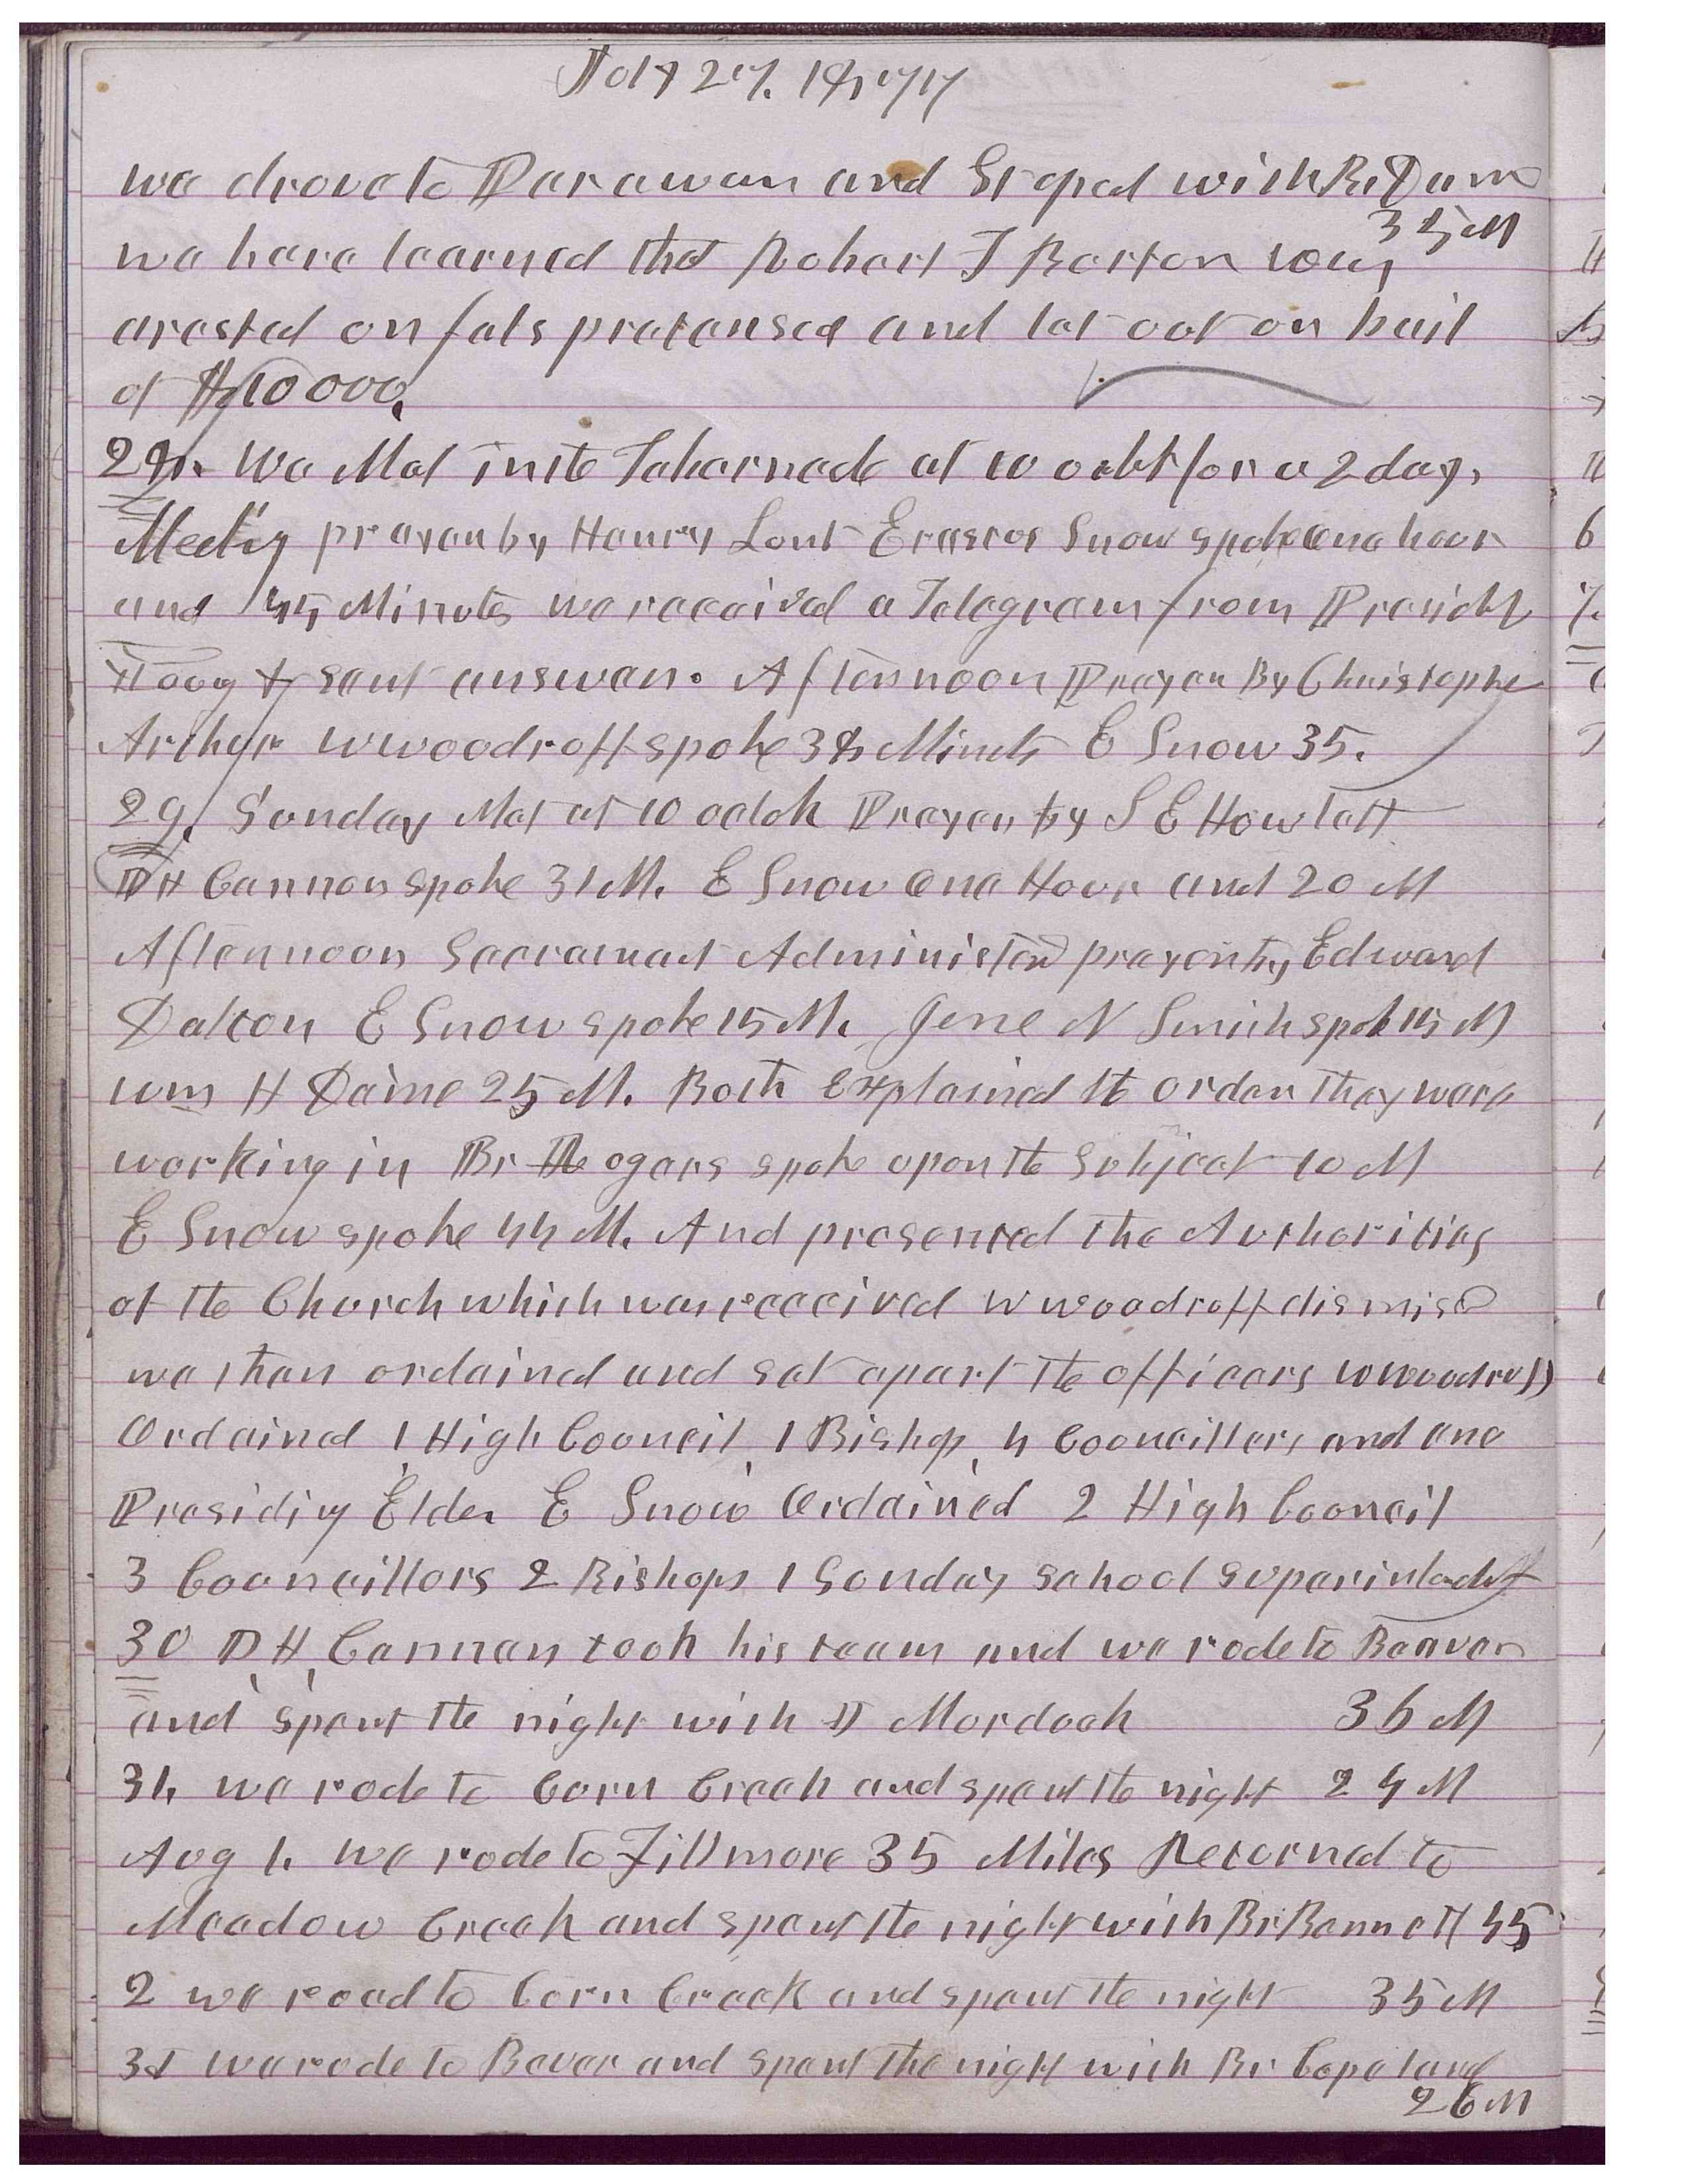 July 27. 1877
we drove to Parawan and Stoped with Br Dame
35 M
we here learned that Robert T Borton was
arested on fals pretensed and let out on bail
of $10000.
28. We Met in the Tabernacle at 10 oclok for a 2 days
Meeting prayer by Henry Lunt Erastus Snow spoke one hour
and 45 Minutes we received a Telegram from Presidet
Young & sent answer. Afternoon Prayer By Christopher
Arthur W woodruff spoke 38 Minuts E Snow 35.
29. Sunday Met at 10 oclok Prayer by S E Howlett
D H Cannon spoke 31 M. E Snow One Hour and 20 M
Afternoon Sacrament Administered prayer by Edward
Dalton E Snow spoke 15 M. Jesse N Smith spok 15 M
wm H Dame 25 M. Both Explained the order they were
working in Br Rogers spoke upon the subject 10 M
E Snow spoke 44 M. And presented the Authorities
of the Church which was received W woodruff dismisd
we then ordained and set apart the officers W woodruff
Ordained 1 High Council, 1 Bishop, 4 Councillors, and one
Presiding Elder E Snow Ordained 2 High Council
3 Councillors 2 Bishops 1 Sunday School Superintedet
30 D. H. Cannan took his team and we rode to Beaver
and spent the night with Murdock 36 M
31. we rode to Corn Creek and spent the night 24 M
Aug 1. We rode to Fillmore 35 Miles Returned to
Meadow Creek and spent the night with Br Bennett 45
2 we road to Corn Creek and spent the night 35 M
3d we rode to Bever and spent the night with Br Copeland
26 M